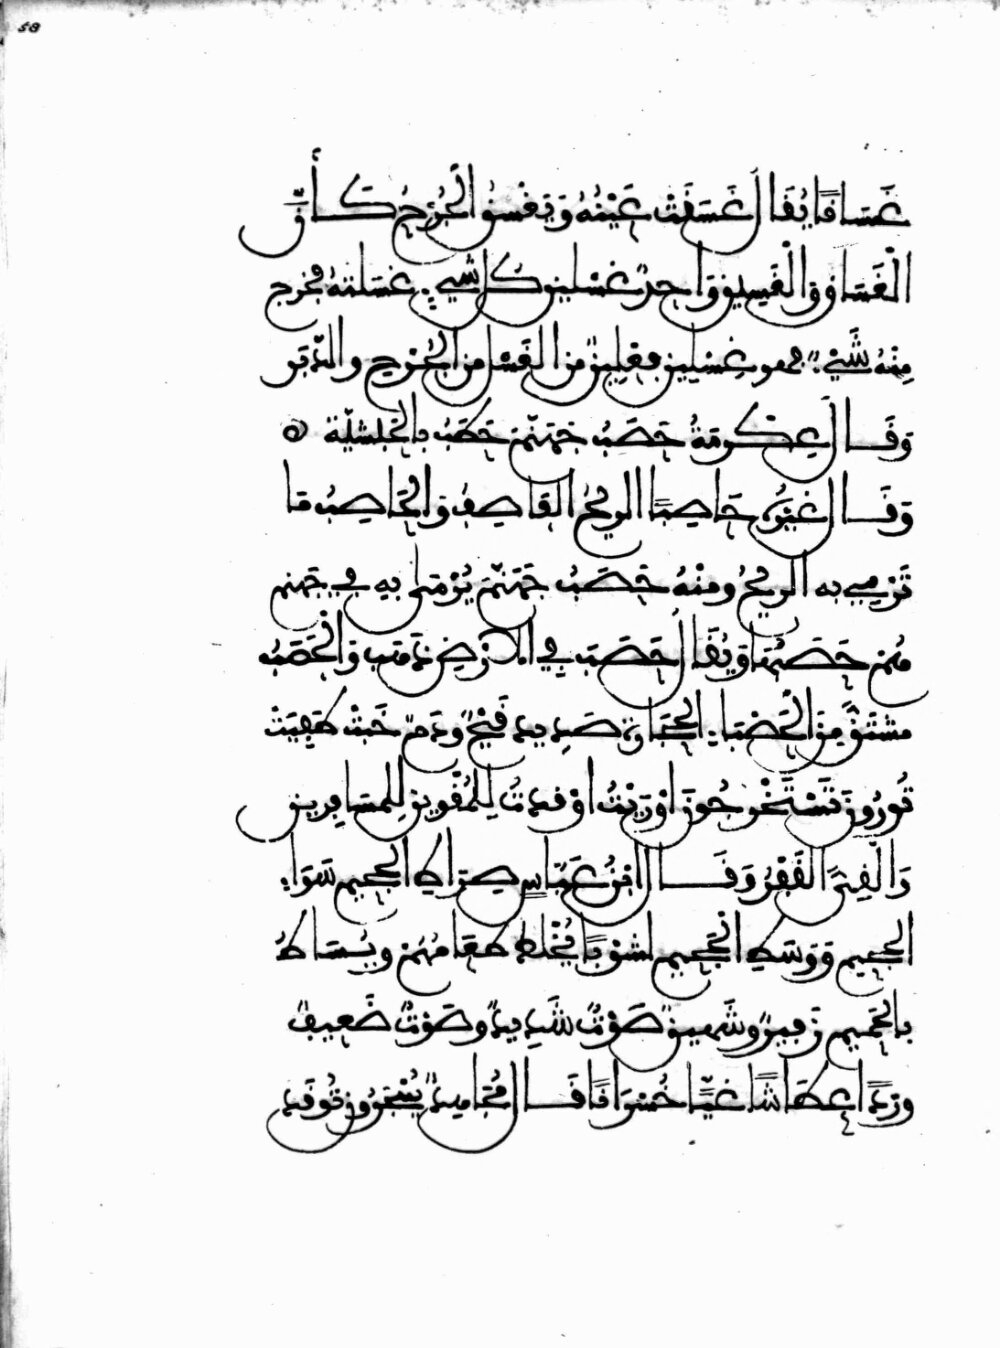 58
غَسَاقًا يُقَالُ غَسَقَتْ عَيْنُهُ وَيَغْسِقُ الْجُرْحُ كَأَنَّ
الْغَسَاقَ وَالْغَسِيقَ وَاحِدٌ غِسْلِينُ كُلُّ شَيْءٍ غَسَلْتَهُ فَخَرَجَ
مِنْهُ شَيْءٌ فَهُوَ غِسْلِينٌ فِعْلِينٌ مِنَ الْغَسْلِ مِنَ الْجُرْحِ وَالدَّبَرِ
وَقَالَ عِكْرِمَةُ حَصَبُ جَهَنَّمَ حَطَبُ بِالْحَبَشِيَّةِ
وَقَالَ غَيْرُهُ حَاصِبًا الرِّيحُ الْعَاصِفُ وَالْحَاصِبُ مَا
تَرْمِي بِهِ الرِّيحُ وَمِنْهُ حَصَبُ جَهَنَّمَ يُرْمَى بِهِ فِي جَهَنَّمَ
هُمْ حَصَبُهَا وَيُقَالُ حَصَبَ فِي الْأَرْضِ ذَهَبَ وَالْحَصَبُ
مُشْتَقٌّ مِنَ الْحَصْبَاءِ الْحِجَارَةِ صَدِيدٌ قَيْحٌ وَدَمٌ خَبَتْ طَفِئَتْ
تُورُونَ تَسْتَخْرِجُونَ أَوْرَيْتُ أَوْقَدْتُ لِلْمُقْوِينَ لِلْمُسَافِرِينَ
وَالْقِيُّ الْقَفْرُ وَقَالَ ابْنُ عَبَّاسٍ صِرَاطِ الْجَحِيمِ سَوَاءِ
الْجَحِيمِ وَوَسَطِ الْجَحِيمِ لَشَوْبًا يُخْلَطُ طَعَامُهُمْ وَيُسَاطُ
بِالْحَمِيمِ زَفِيرٌ وَشَهِيقٌ صَوْتٌ شَدِيدٌ وَصَوْتٌ ضَعِيفٌ
وِرْدًا عِطَاشًا غَيًّا خُسْرَانًا قَالَ مُجَاهِدٌ يُسْجَرُونَ تُوقَدُ